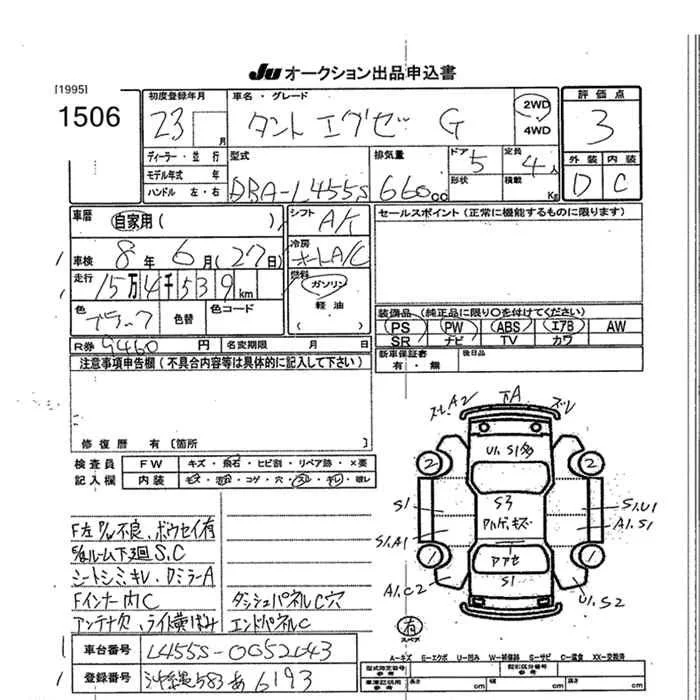 JU オークション出品申込書
[1995]
1506
初度登録年月
23 月
車名・グレード
タント エグゼ G
2WD
4WD
評価点
3
外装 内装
D C
ディーラー・並行
モデル年式 年
ハンドル 左・右
型式
DBA-L455S
排気量
660 cc
ドア
5
形状
定員
4人
積載 Kg
車歴
自家用( )
シフト
A/C
車検 8年6月(27日)
冷房
オートA/C
走行 15万4千539km
燃料
ガソリン
軽油
色
ブラック
色替
色コード
R券 9460円
名変期限 月 日
セールスポイント(正常に機能するものに限ります)
装備品(純正品に限り○を付けてください)
PS PW ABS エアB AW
SR ナビ TV カワ
新車保証書
有・無
後日品
注意事項申告欄(不具合内容等は具体的に記入して下さい)
修復歴 有〔箇所 〕
検査員
記入欄
FW キズ・飛石・ヒビ割・リペア跡・×要
内装
コゲ・穴・スレ・キレ
F左P/W不良、ボウセイ有
ルーム下廻S.C
シートシミ、キレ、DミラーA
Fインナー内C
ダッシュパネルC穴
アンテナ欠、ライト黄ばみ
エンドパネルC
車台番号 L455S-0052643
登録番号 沖縄583あ6193
スレ、A2 下A ズレ
U1.S1多
2 2
S1 S3 S1.U1
ハゲ、キズ
S1.A1 A1.S1
1 アアセ 1
S1
A1.C2 U1.S2
有
スペア
A-キズ E-エクボ U-凹み W-補修跡 S-サビ C-腐食 XX-交換済
型式指定番号
参考
類別区分番号
参考
車庫証明用
参考
長さ cm
幅 cm
高さ cm